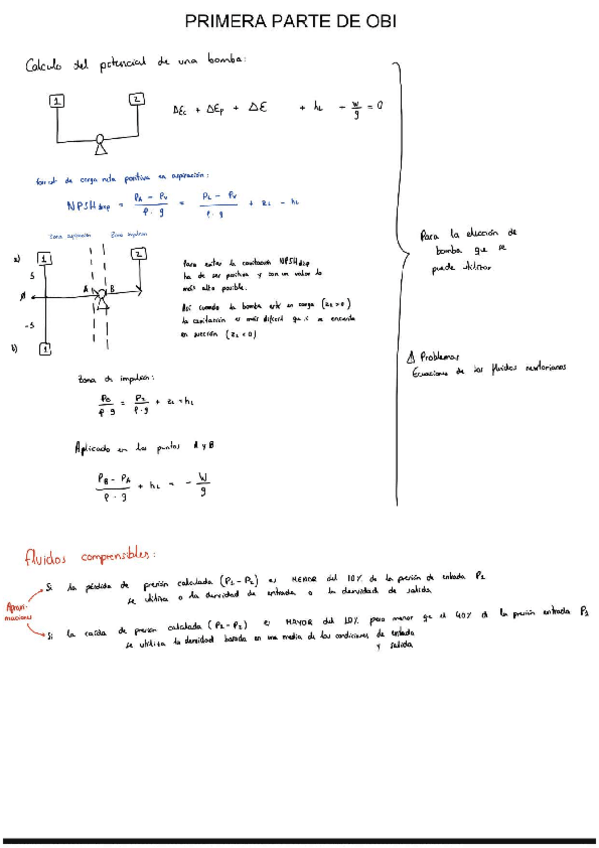 PRIMERA PARTE DE OBI
Calculo del potencial de una bomba:
1
2
ΔEc + ΔEp + ΔE + hL - W/g = 0
de carga neta positiva en aspiración:
NPSHdisp = (PA - Pv)/(ρ · g) = (P1 - Pv)/(ρ · g) + z1 - hL
Zona aspiración Zona impulsion
a) 1
2
5
A B
-5
b) 1
Para evitar la cavitación NPSHdisp
ha de ser positiva y con un valor lo
más alto posible.
Así cuando la bomba esté en carga (z1 > 0)
la cavitación es más difícil que si se encuentra
en succión (z1 < 0)
Para la elección de
bomba que se
puede utilizar
⚠ Problemas
Ecuaciones de los fluidos newtonianos
Zona de impulsion:
PB/(ρ g) = P2/(ρ · g) + z2 + hL
Aplicado en los puntos A y B
(PB - PA)/(ρ · g) + hL = - W/g
Fluidos compresibles:
Aproximaciones
Si la pérdida de presión calculada (P1 - P2) es MENOR del 10% de la presión de entrada P1
se utiliza o la densidad de entrada o la densidad de salida.
Si la caída de presión calculada (P1 - P2) es MAYOR del 10% pero menor que el 40% de la presión entrada P1
se utiliza la densidad basada en una media de las condiciones de entrada
y salida